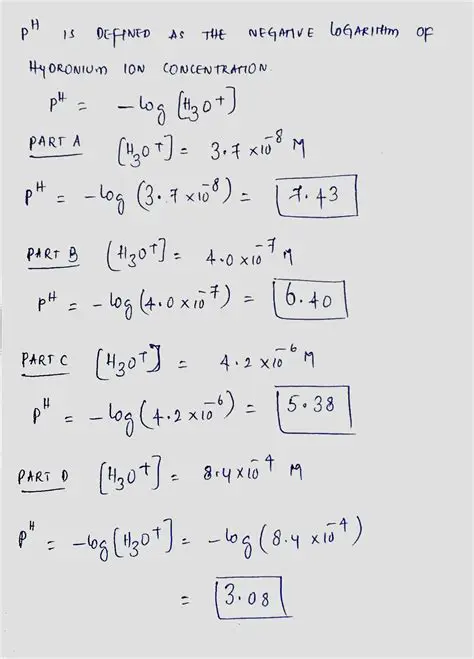 pH IS DEFINED AS THE NEGATIVE LOGARITHM OF
HYDRONIUM ION CONCENTRATION.
pH = -log [H3O+]
PART A [H3O+] = 3.7 x10^-8 M
pH = -log (3.7 x10^-8) = 7.43
PART B [H3O+] = 4.0 x10^-7 M
pH = -log (4.0 x10^-7) = 6.40
PART C [H3O+] = 4.2 x10^-6 M
pH = -log (4.2 x10^-6) = 5.38
PART D [H3O+] = 8.4 x10^-4 M
pH = -log [H3O+] = -log (8.4 x10^-4)
= 3.08